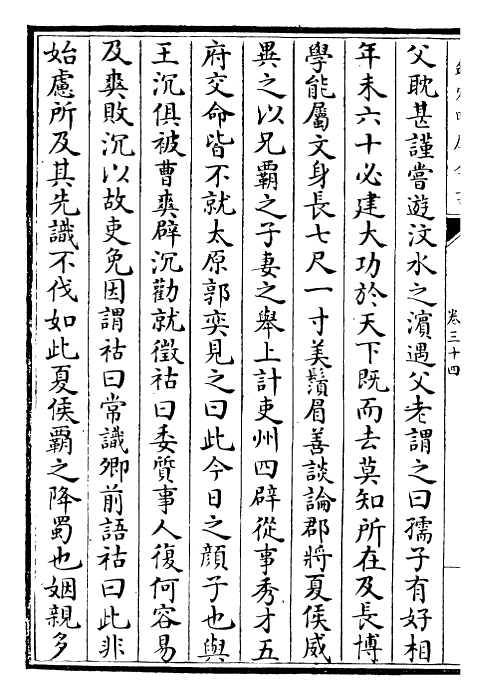 父耽甚謹嘗遊汶水之濱遇父老謂之曰孺子有好相
年未六十必建大功於天下既而去莫知所在及長博
學能屬文身長七尺一寸美鬚眉善談論郡將夏侯威
異之以兄霸之子妻之舉上計吏州四辟從事秀才五
府交命皆不就太原郭奕見之曰此今日之顔子也與
王沉俱被曹爽辟沉勸就徵祜曰委質事人復何容易
及爽敗沉以故吏免因謂祜曰常識卿前語祜曰此非
始慮所及其先識不伐如此夏侯霸之降蜀也姻親多
卷三十四